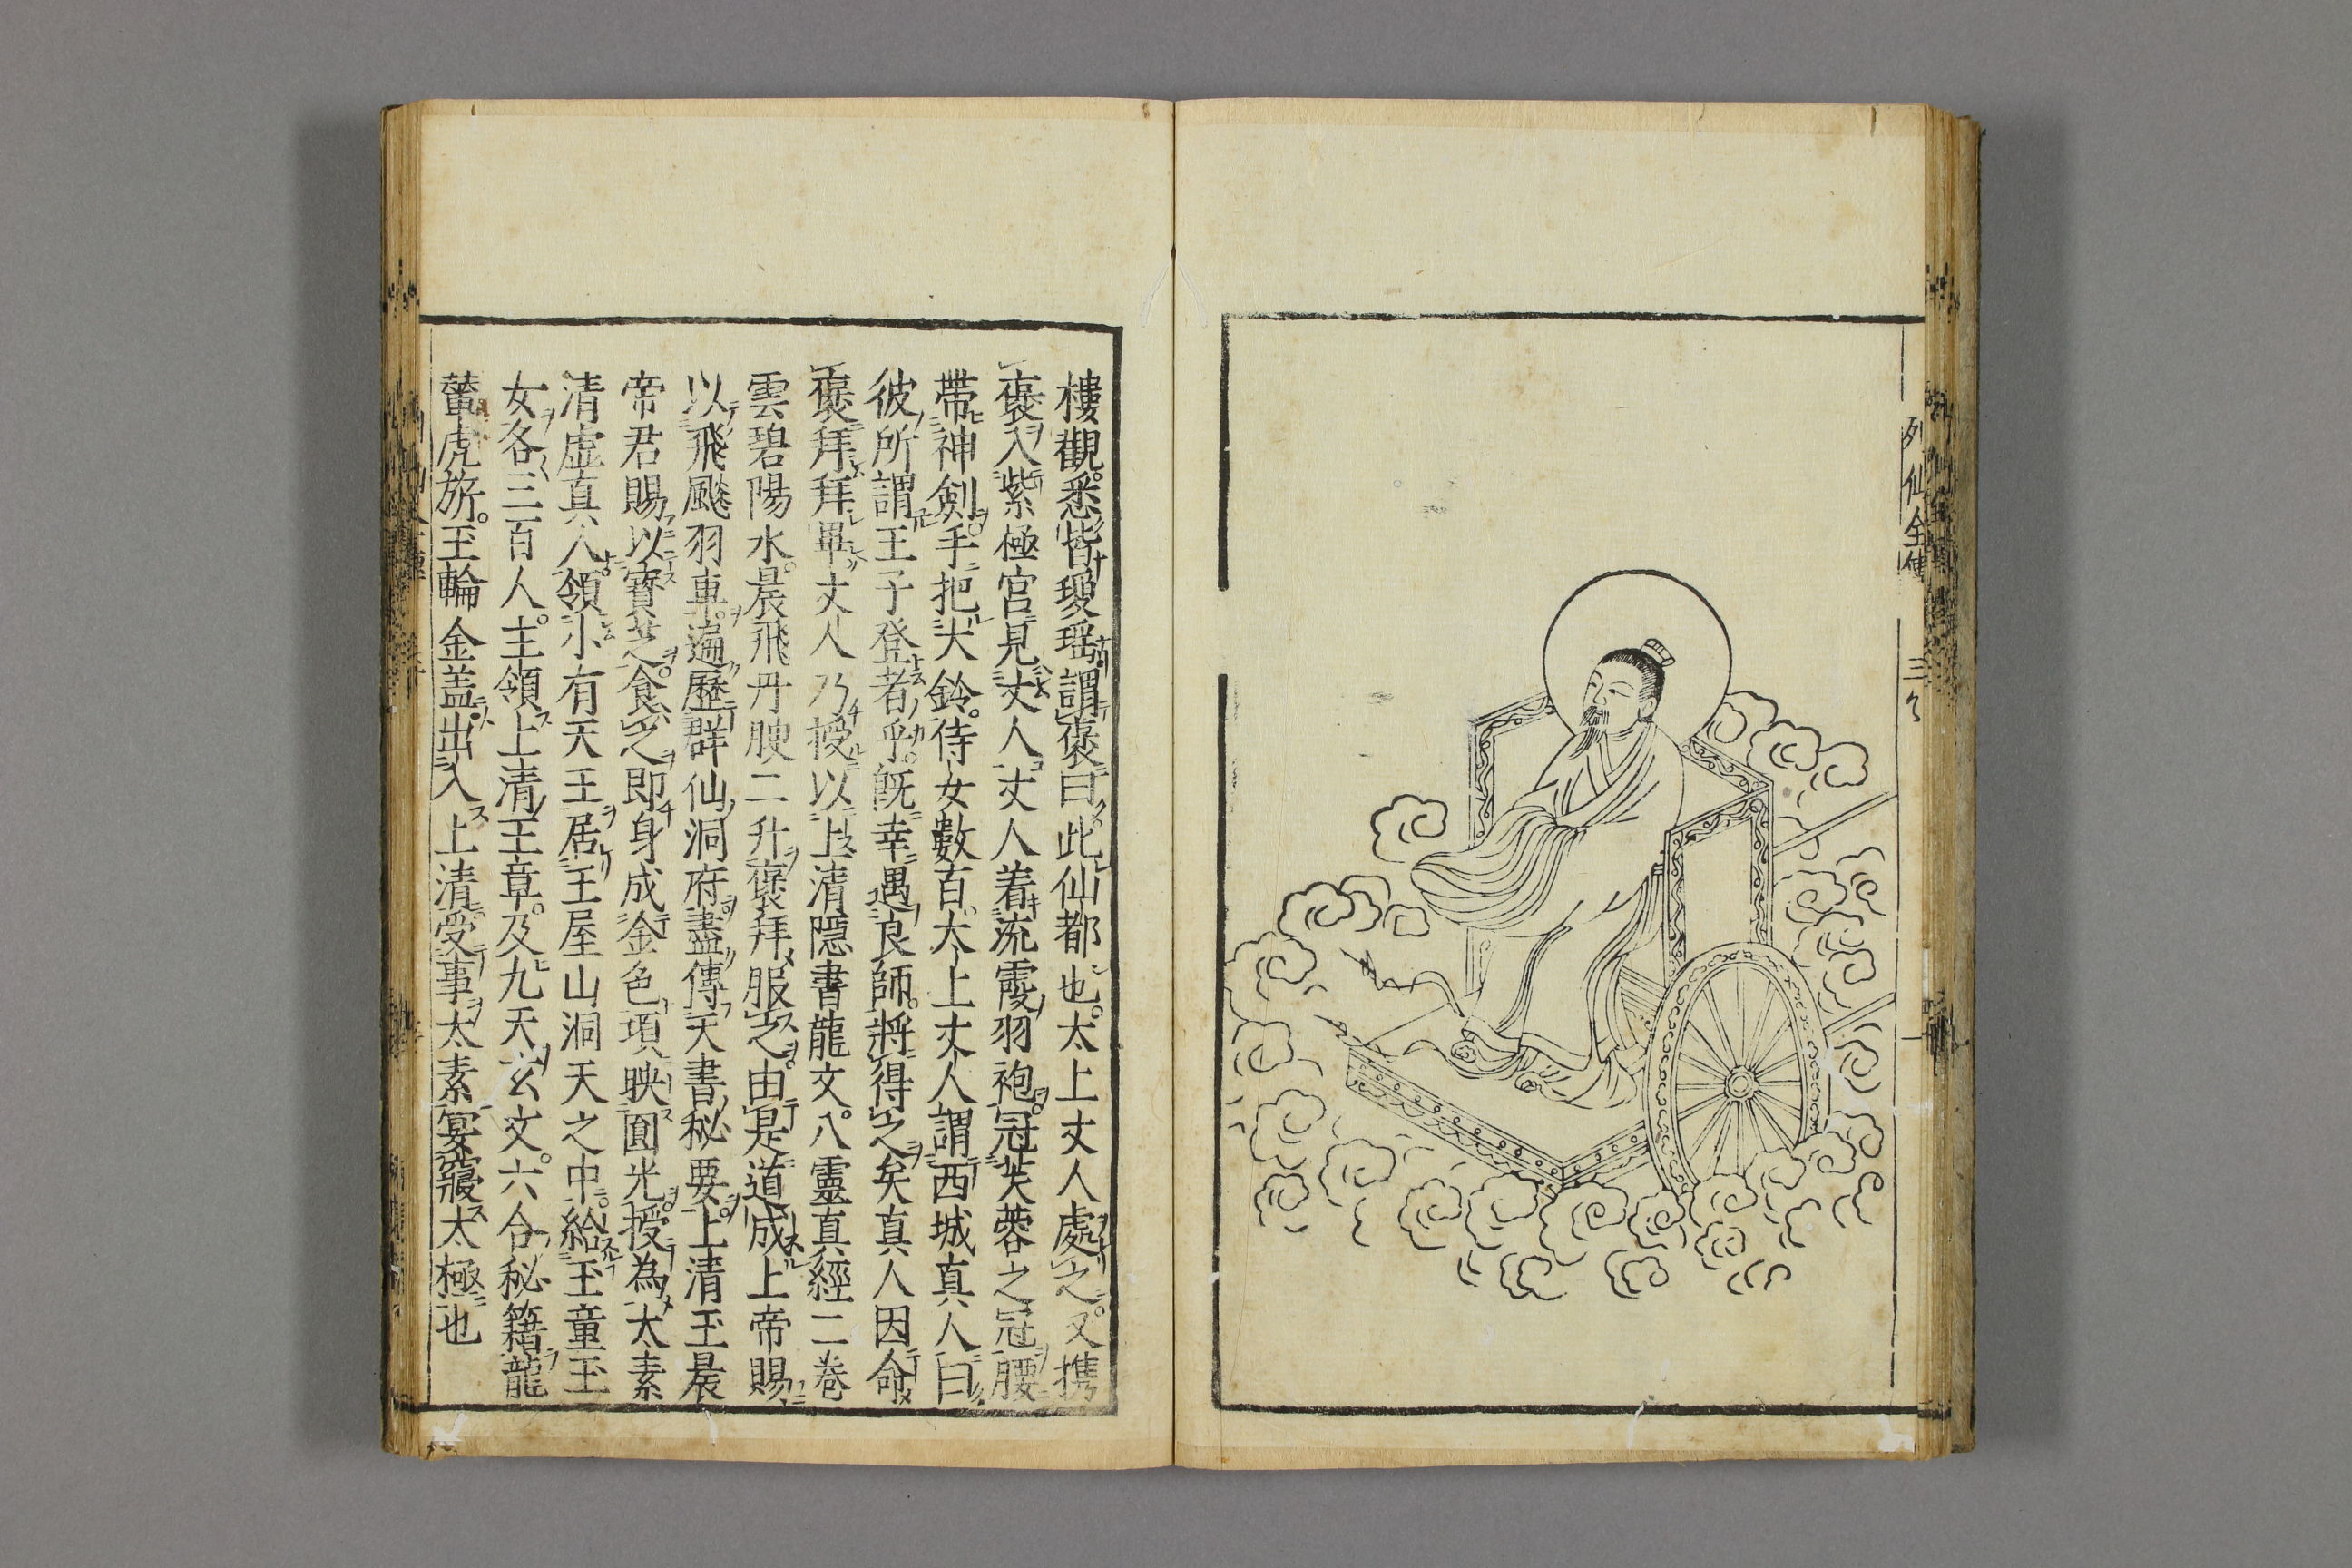 列仙全傳
三ノ
樓觀悉皆瓊瑶謂褒曰此仙都也太上丈人處之又携
褒入紫極宮見丈人丈人着流霞羽袍冠芙蓉之冠腰
帶神劍手把大鈴侍女數百太上丈人謂西城真人曰
彼所謂王子登者乎既幸遇良師將得之矣真人因命
褒拜拜畢丈人乃授以上清隱書龍文八靈真經二巻
雲碧陽水晨飛丹腴二升褒拜服之由是道成上帝賜
以飛飈羽車遍歷群仙洞府盡傳天書秘要上清玉晨
帝君賜以寶芝食之即身成金色項映圓光授為太素
清虛真人領小有天王居王屋山洞天之中給玉童玉
女各三百人主領上清玉章及九天玄文六合秘籍龍
輦虎旂玉輪金盖出入上清受事太素宴寢太極也